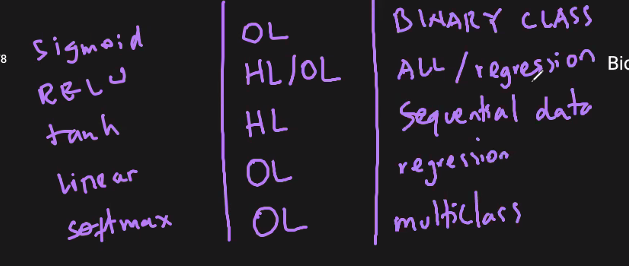 sigmoid OL BINARY CLASS
RELU HL/OL ALL/regression
tanh HL Sequential data
linear OL regression
softmax OL multiclass
8
Bio